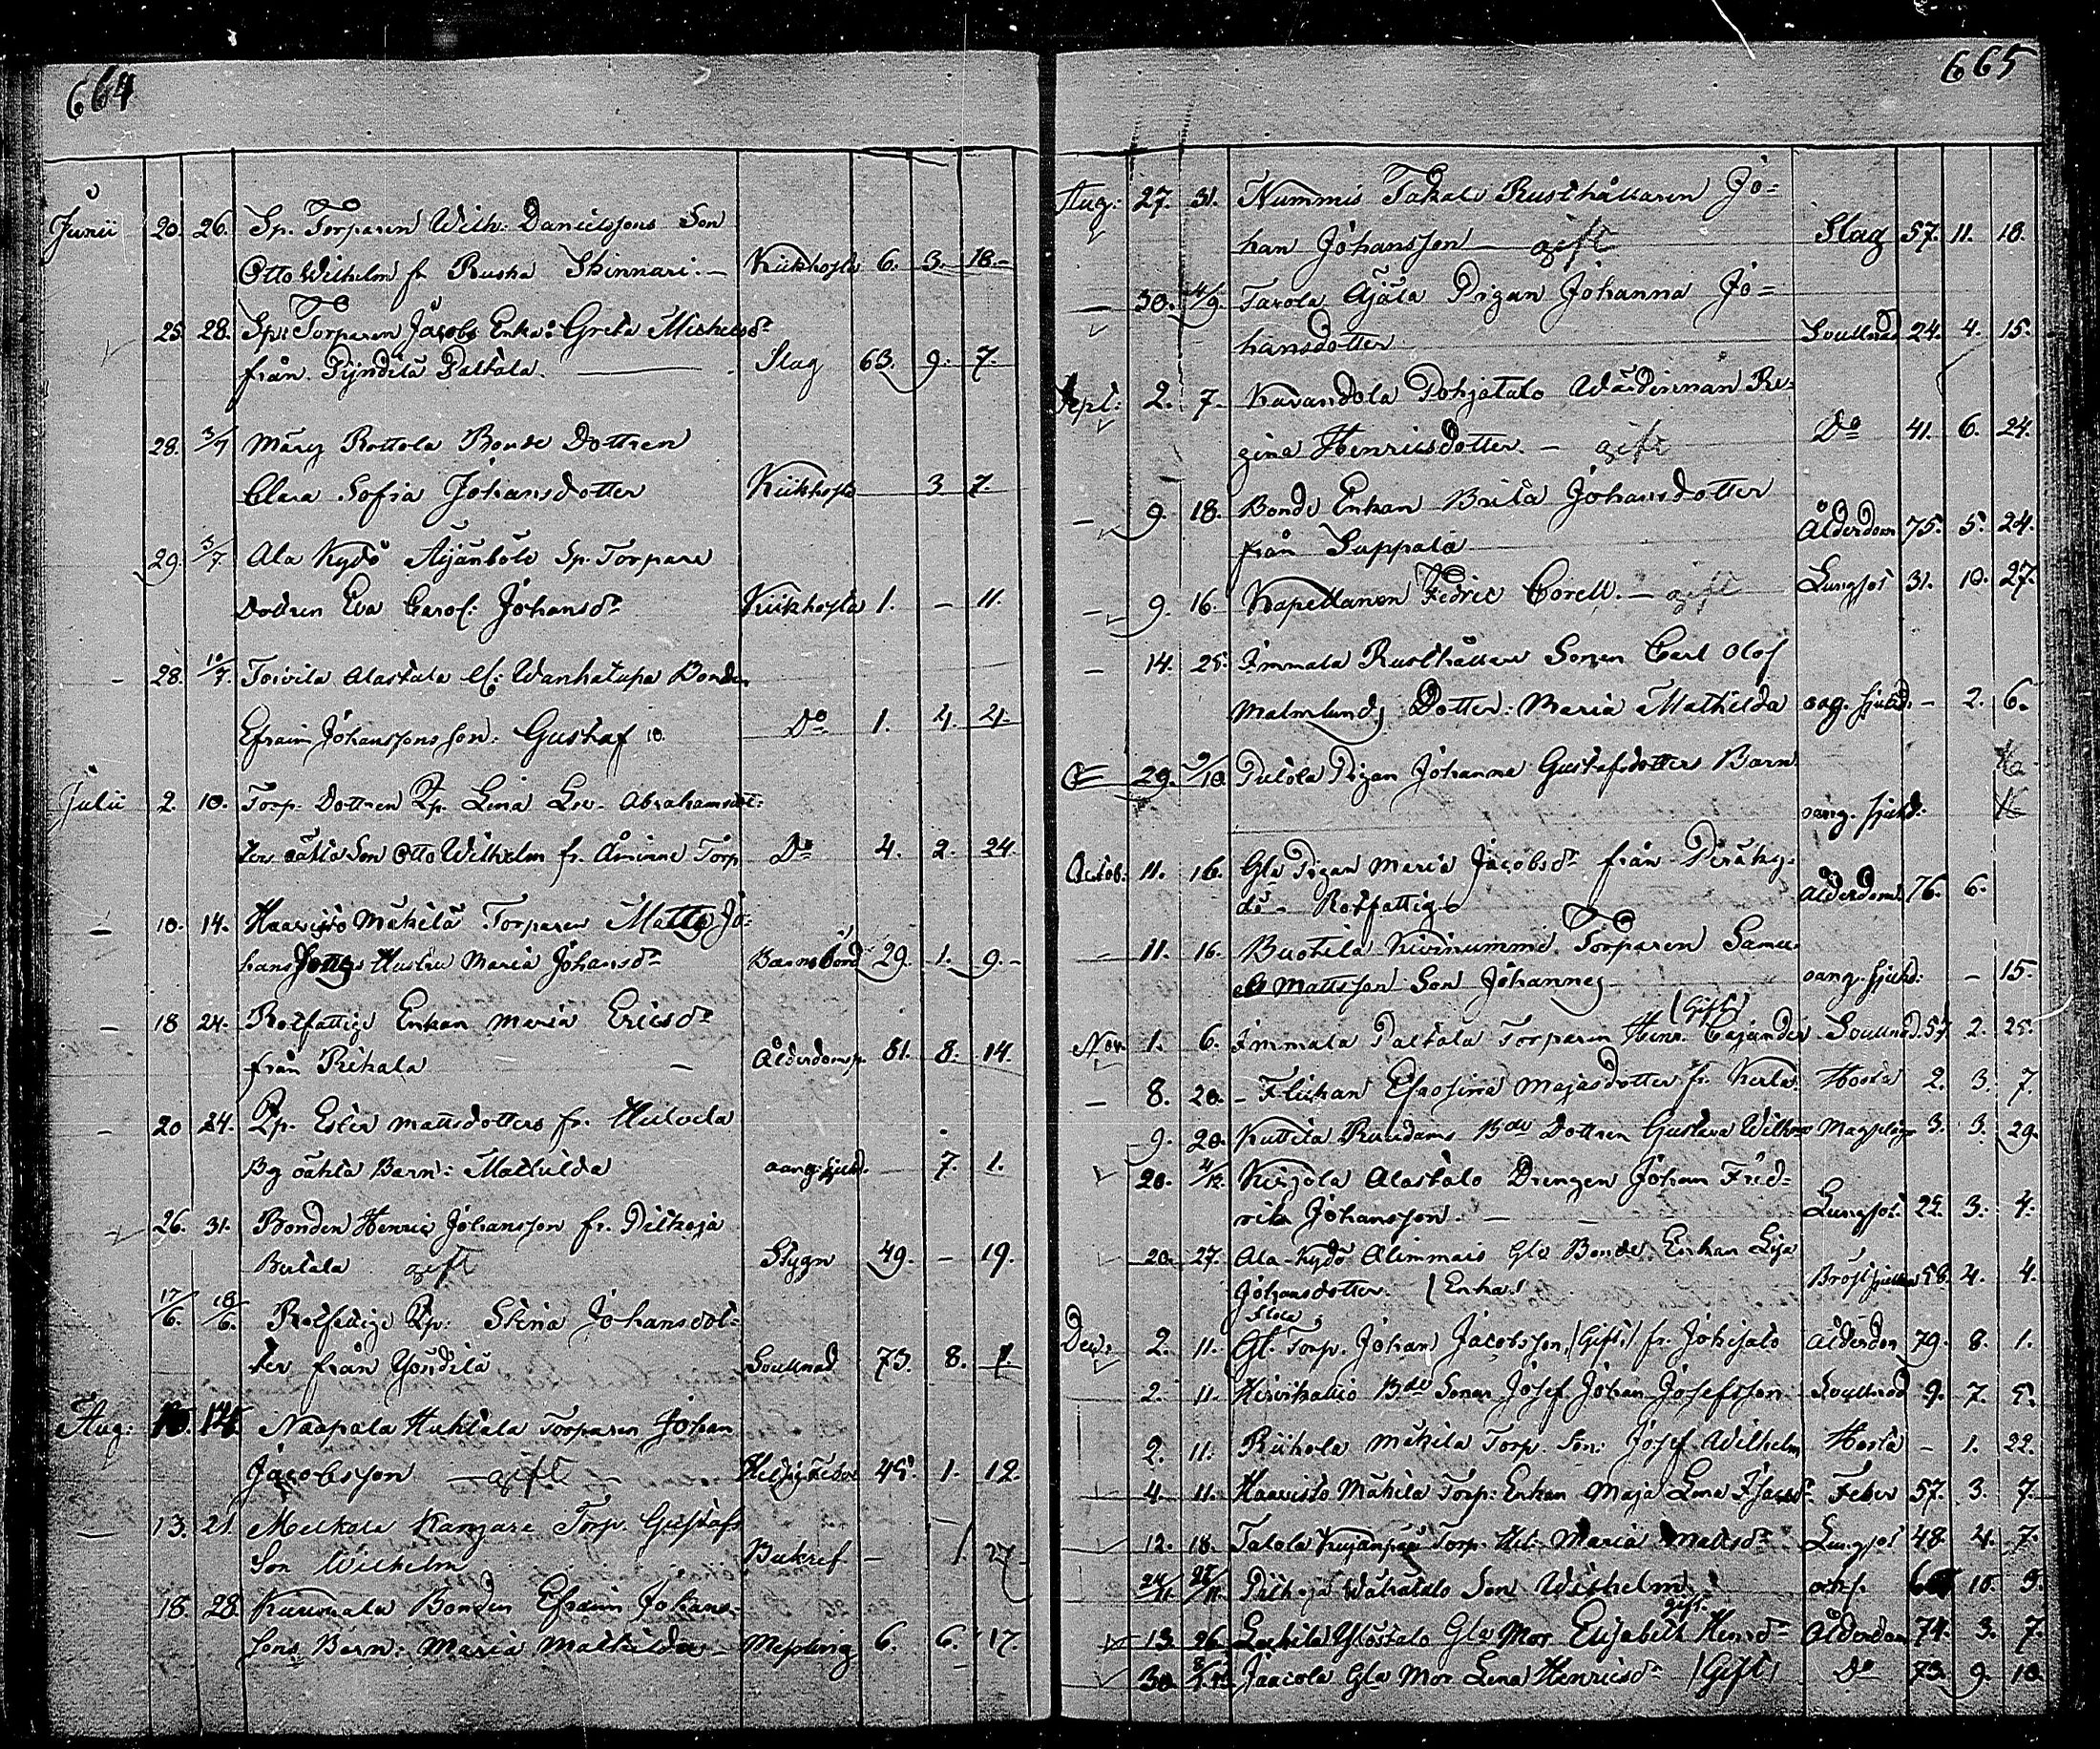 664
Junii 20. 26. Sp. Torparen Wilh: Danielssons Son
Otto Wilhelm fr Ruska Skinnari. — Kikhosta 6. 3. 18.
25. 28. Sp: Torparen Jacobs Enka: Greta Michelsdr
från Pyndilä Paltala. — Slag 63. 9. 7.
28. 3/7 Märy Rottola Bonde Dottren
Clara Sofia Johansdotter Kikhosta 3 7.
29. 3/7 Ala Kydö Äijänböle Sp. Torpare
Dottren Eva Carol: Johansdr Kikhosta 1. — 11.
— 28. 10/7. Toivila Alastalo el: Wanhatupa Bonden
Efraim Johanssons son: Gustaf Do 1. 4. 4.
Julii 2. 10. Torp. Dottren Qp. Lena Lov. Abrahamsdot:
ters oäkta Son Otto Wilhelm fr. Åminne Torp Do 4. 2. 24.
— 10. 14. Haaristo Mäkilä Torparen Matts Jo-
hanssons Hustru Maria Johansdr Barnsbörd 29. 1. 9. -
— 18 24. Rotfattige Enkan Maria Ericsdr
från Prihala — Ålderdoms. 81. 8. 14.
— 20 24. Qp. Ester Mattsdotters fr. Hulvela
By oäkta Barn: Mathilda oang: sjukd. — 7. 1.
26. 31. Bonden Henric Johansson fr. Pitkoja
Bertala gift Stygn 49. — 19.
17/6. 18/6. Rotfattige Qp: Stina Johansdot-
ter från Yöndilä Soullnad 73. 8. 1.
Aug: 10. 14. Naapala Huhtala Torparen Johan
Jacobsson — gift — 45. 1. 12.
— 13. 21. Melkola Kangare Torp. Gustafs
Son Wilhelm — 1. 27
18. 28. Kurumala Bonden Efraim Johans-
sons Barn: Maria Mathilda — Messling 6. 6. 17.
665
Aug: 27. 31. Nummis Takala Rusthållaren Jo-
han Johansson — gift Slag 57. 11. 18.
— 30. 4/9. Tavola Äjälä Pigan Johanna Jo-
hansdotter Soullnad 24. 4. 15.
Sept: 2. 7. Kavandola Pohjatalo Wärdinnan Re-
gina Henricsdotter. — gift Do 41. 6. 24.
— 9. 18. Bonde Enkan Brita Johansdotter
från Suppala Ålderdom 75. 5. 24.
— 9. 16. Kapellanen Fredric Corell. — gift Lungsot 31. 10. 27.
— 14. 25. Immala Rusthållare Sonen Carl Olof
Malmlunds Dotter: Maria Mathilda oang. sjukd. — 2. 6.
29. 9/10. Putola Pigan Johanna Gustafsdotters Barn
oang. sjukd.
Octob: 11. 16. Gla Pigan Maria Jacobsdr från Peräky-
dö - Rotfattig Ålderdom. 76. 6.
— 11. 16. Buotila Kivinummi Torparen Samu-
el Mattsson Son Johannes oang. sjukd: — 15.
(Gift)
Nov. 1. 6. Immala Paltala Torparen Henr. Cajander Soullnad. 57 2. 25.
— 8. 20. - Flickan Efrosina Majasdotter fr. Kerla Hosta 2. 3. 7
9. 20. Kuttila Ruudams Bde Dottren Gustava Wilhma 3. 3. 29.
20. 4/12. Kirjola Alastalo Drengen Johan Fred-
rik Johansson. — Lungsot. 22. 3. 4.
20. 27. Ala-Kydö Alimmais Gle Bonde Enkan Lisa
Johansdotter (Enka) Bröst sjukdom 58. 4. 4.
Dec: 2. 11. Gl. Torp. Johan Jacobsson (Gift) fr. Jokisalo Ålderdom 79. 8. 1.
2. 11. Hirvikallio Bde Sonen Josef Johan Josefsson Soullnad 9. 7. 5.
2. 11. Riihola Mäkilä Torp. Son: Josef Wilhelm Hosta — 1. 22.
4. 11. Haaristo Mäkilä Torp: Enkan Maja Lena Isacsdr Feber 57. 3. 7.
12. 18. Talola Kujanpää Torp. Hu: Maria Mattsdr Lungsot 48. 4. 7.
24/11. Pitkoja Wähätalo Son Wilhelm 10. 9.
gift.
13 26 Yöstalo Gla Mor Elisabeth Henrdr Ålderdom 74. 3. 7.
30. Jaacola Gla Mor Lena Henricsdr (Gift) Do 73. 9. 10.